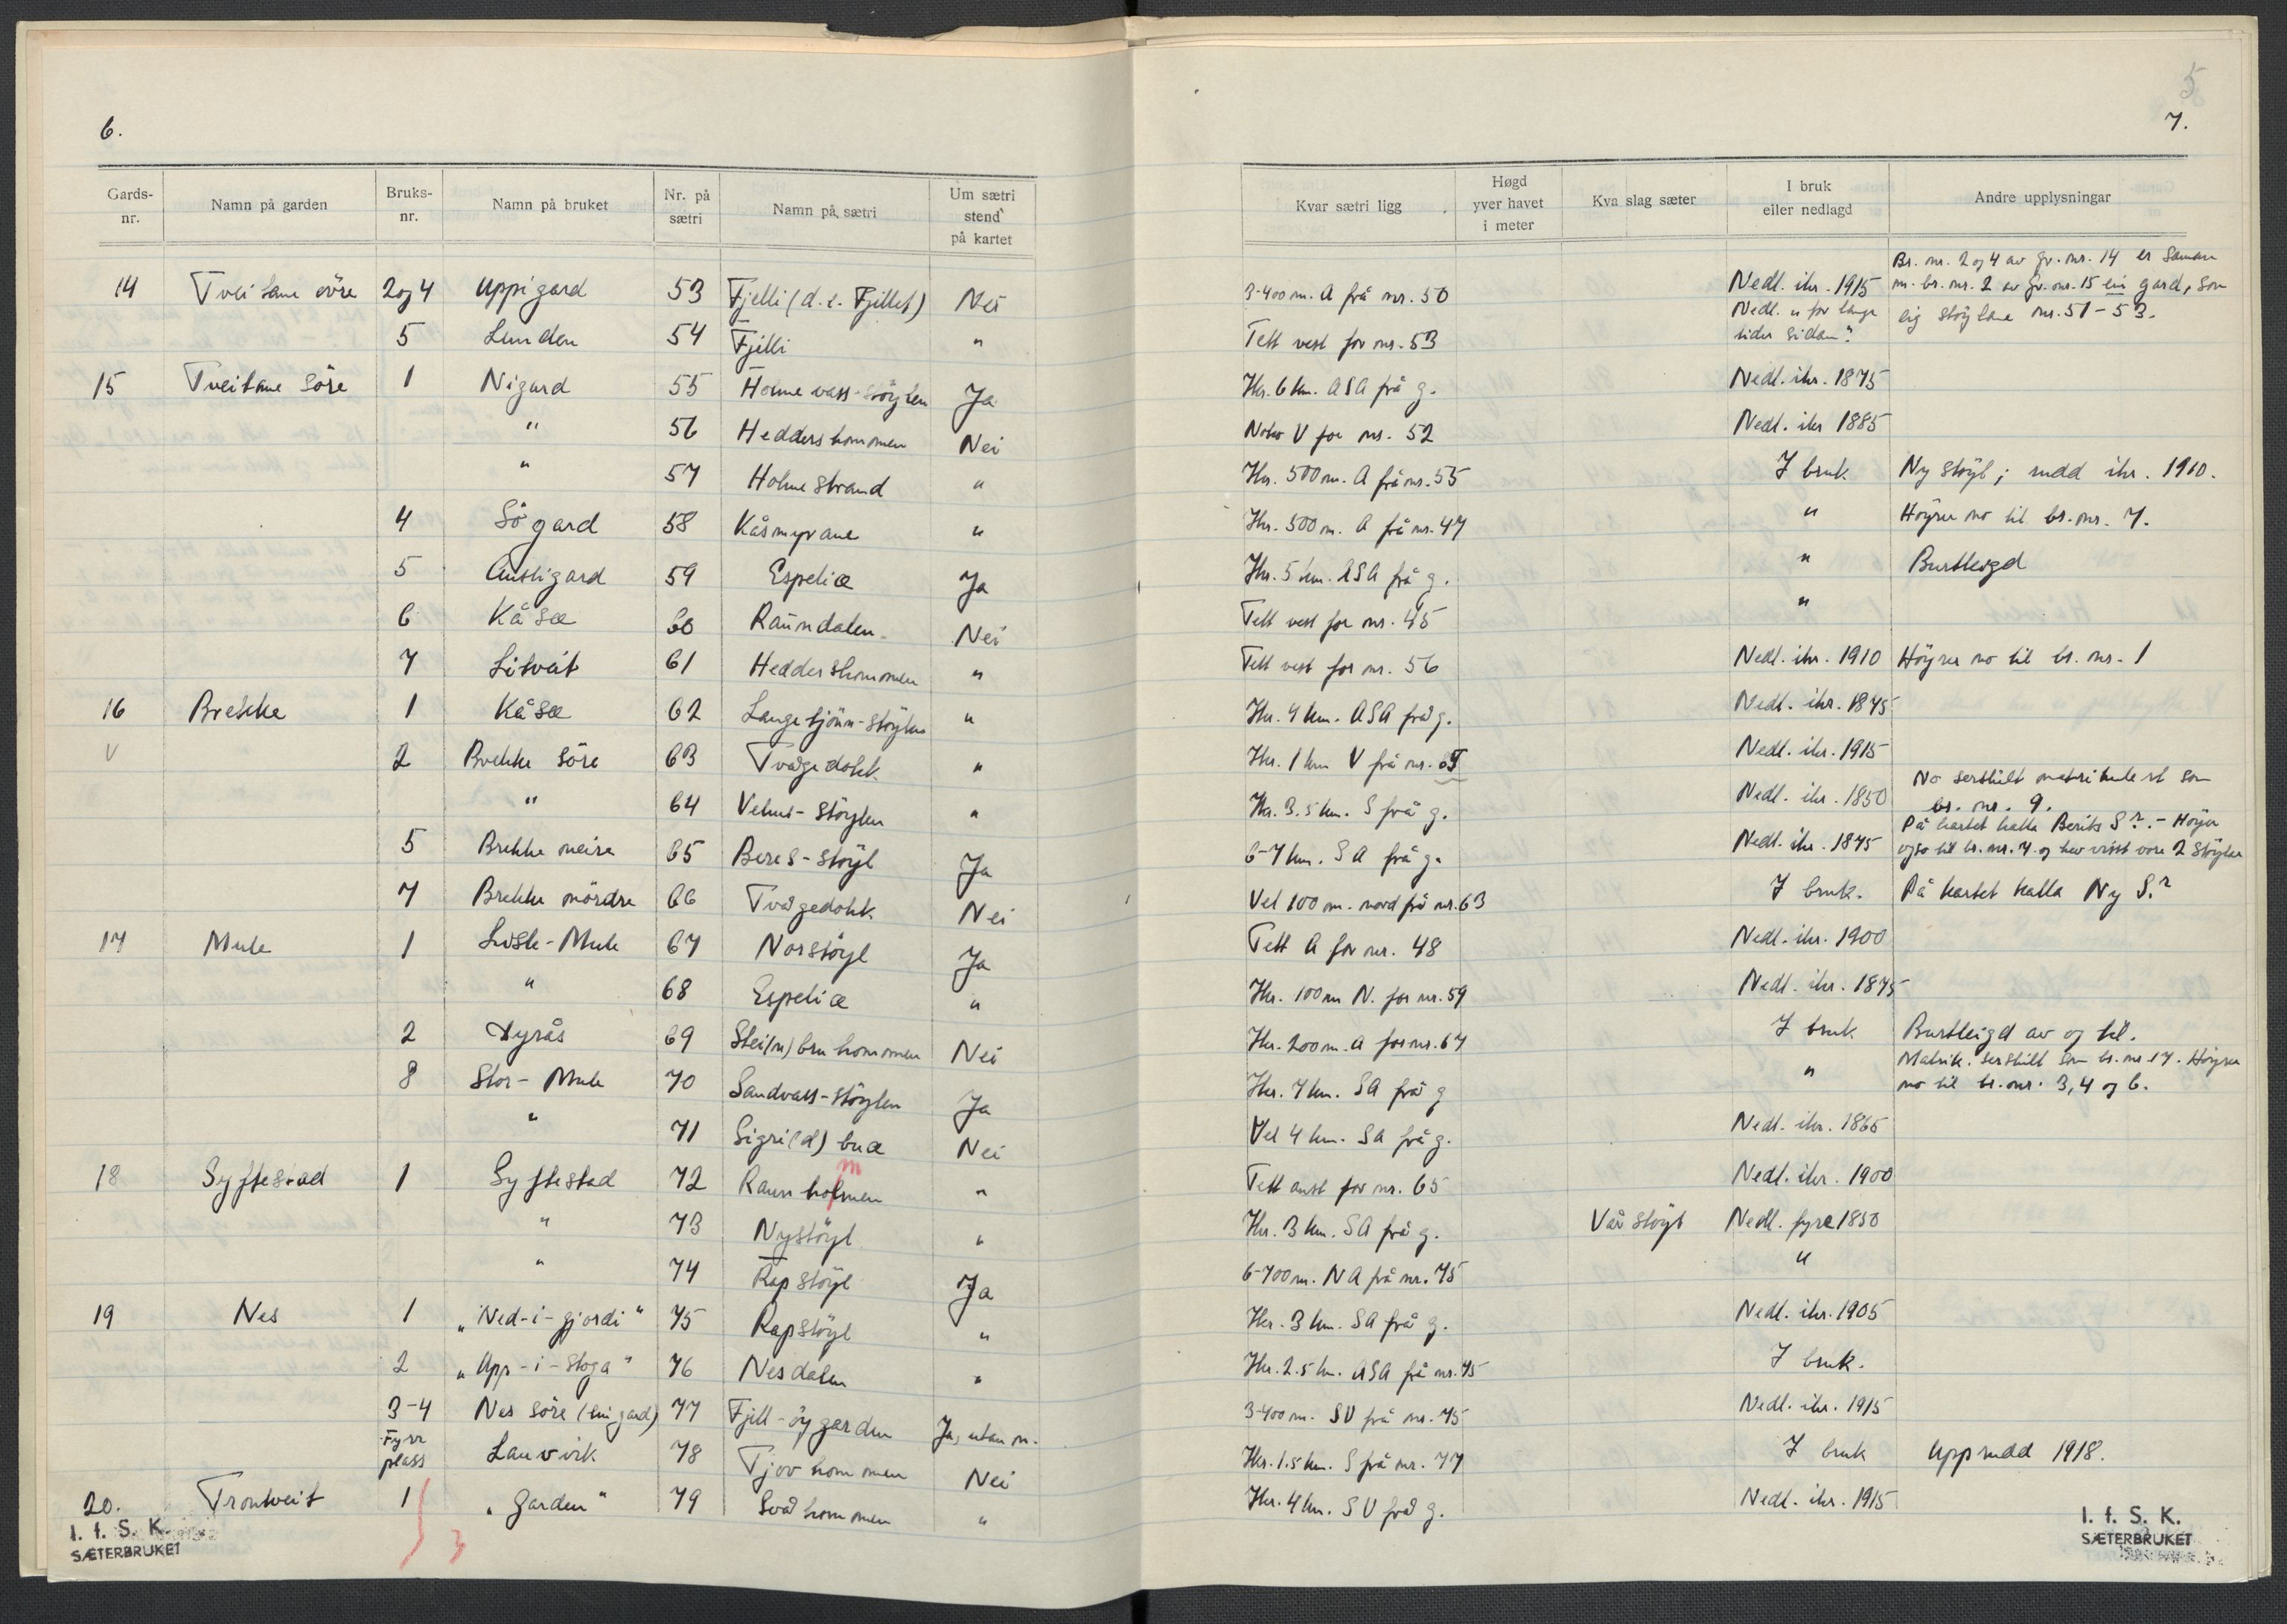 6.
Gards-nr. Namn på garden Bruks-nr. Namn på bruket Nr. på sætri Namn på sætri Um sætri stend på kartet
14 Tveitane övre 2 og 4 Uppigard 53 Fjelli (d.e. Fjillet) Nei
5 Lunden 54 Fjilli "
15 Tveitane Söre 1 Nigard 55 Holmevass-støylen Ja
" 56 Heddershommen Nei
" 57 Holmestrand "
4 Sögard 58 Kåsmyrane "
5 Austigard 59 Espeliæ Ja
6 Kåsæ 60 Raundalen Nei
7 Litveit 61 Heddershommen "
16 Brekke 1 Kåsæ 62 Langetjönn-støylen "
V 2 Brekke Söre 63 Tvågedokk "
" 64 -støylen "
5 Brekke neire 65 Beres-støyl Ja
7 Brekke nördre 66 Tvågedokk Nei
17 Mule 1 Lisle-Mule 67 Norstøyl Ja
" 68 Espeliæ "
2 Dyrås 69 Stei(n)bruhommen Nei
8 Stor-Mule 70 Sandvass-støylen Ja
" 71 Sigri(d)buæ Nei
m
18 Syftestad 1 Syftestad 72 Raunholmen "
" 73 Nystøyl "
" 74 Rapstøyl Ja
19 Nes 1 "Ned-i-gjordi" 75 Rapstøyl "
2 "Upp-i-Stoga" 76 Nesdalen "
3-4 Nes söre (ein gard) 77 Fjill-öygarden Ja, utan n.
Fyrr plass Lauvvik 78 Tjovhommen Nei
20. Trontveit 1 "Garden" 79 Svadhommen "
3
I. f. S. K.
SÆTERBRUKET
5
7.
Kvar sætri ligg Høgd yver havet i meter Kva slag sæter I bruk eller nedlagd Andre upplysningar
3-400 m. A frå nr. 50 Nedl. ikr. 1915 Br. nr. 2 og 4 av gr. nr. 14 er saman m. br. nr. 2 av gr. nr. 15 ein gard, som eig støylane nr. 51-53.
Tett vest for nr. 53 Nedl. "for lange tider sidan".
Ikr. 6 km. ASA frå g. Nedl. ikr. 1875
V for nr. 52 Nedl. ikr 1885
Ikr. 500 m. A frå nr. 55 I bruk Ny støyl; rudd ikr. 1910.
Ikr. 500 m. A frå nr. 47 " Höyrer no til br. nr. 7.
Ikr. 5 km. ASA frå g. " Burtleigd
Tett vest for nr. 45 "
Tett vest for nr. 56 Nedl. ikr. 1910 Höyrer no til br. nr. 1
Ikr. 4 km. ASA frå g. Nedl. ikr. 1845
Ikr. 1 km V frå nr. Nedl. ikr. 1915
Ikr. 3.5 km. S frå g. Nedl. ikr. 1850 No serskilt matrikulert som br. nr. 9.
6-7 km. SA frå g. Nedl. ikr. 1875 På kartet kalla Berits S?. - Höyer også til br. nr. 7 og hev visst vore 2 støylar
Vel 100 m. nord frå nr. 63 I bruk. På kartet kalla Ny S.?
Tett A for nr. 48 Nedl. ikr. 1900
Ikr. 100 m N. for nr. 59 Nedl. ikr. 1875
Ikr. 200 m. A for nr. 67 I bruk Burtleigd av og til.
Ikr. 7 km. SA frå g " Matrik. serskilt som br. nr. 17. Höyrer no til br. nr. 3, 4 og 6.
Vel 4 km. SA frå g. Nedl. ikr. 1865
Tett aust for nr. 65 Nedl. ikr. 1900
Ikr. 3 km. SA frå g. Vårstøyl Nedl. fyre 1850
6-700 m. NA frå nr. 75 "
Ikr. 3 km. SA frå g. Nedl. ikr. 1905
Ikr. 2.5 km. ASA frå nr. 75 I bruk.
3-400 m. SV frå nr. 75 Nedl. ikr. 1915
Ikr. 1.5 km. S frå nr. 77 I bruk Upprudd 1918.
Ikr. 4 km. SV frå g. Nedl. ikr. 1915
I. f. S. K.
SÆTERBRUKET